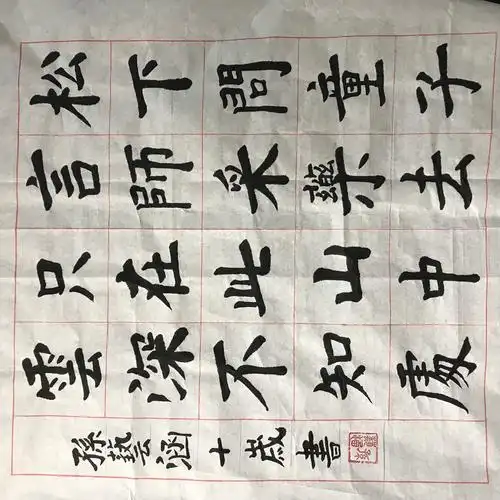 松下問童子
言師采藥去
只在此山中
雲深不知處
孫藝涵十歲書